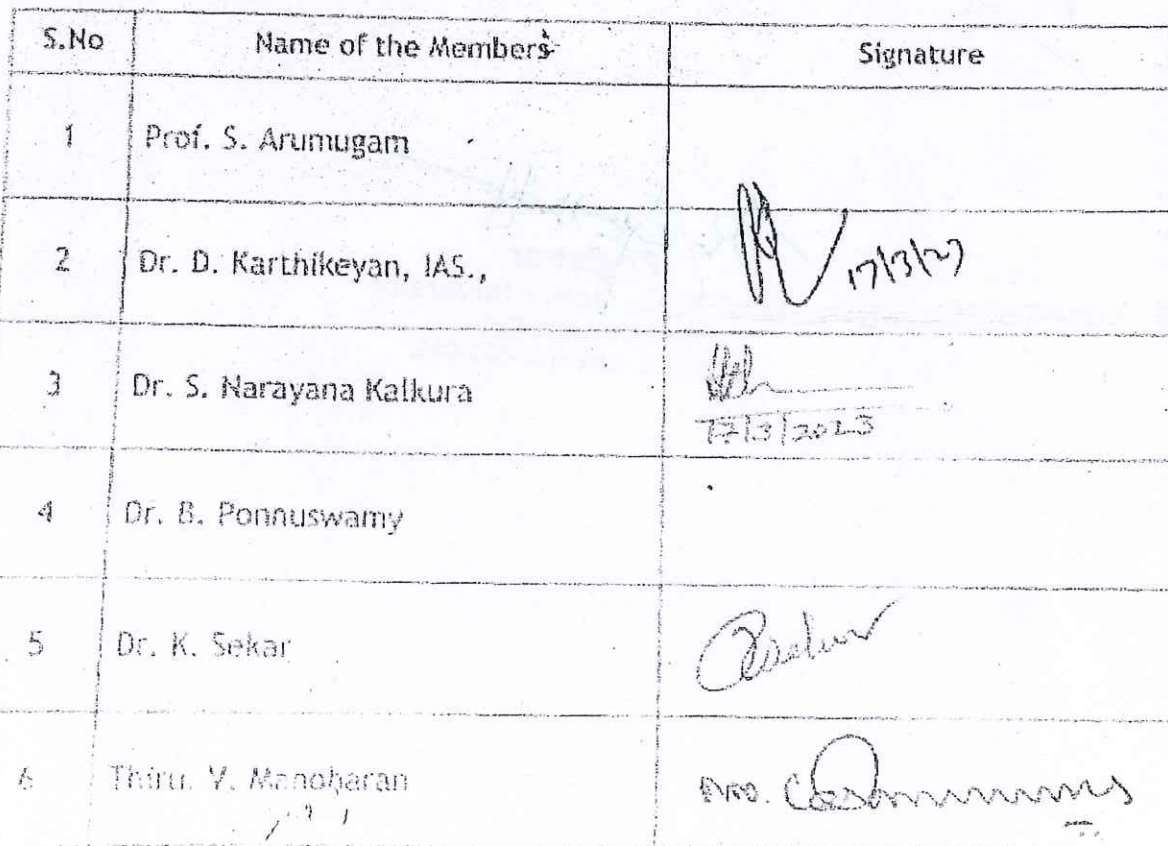 S.No Name of the Members Signature
1 Prof. S. Arumugam
2 Dr. D. Karthikeyan, IAS., 17/3/23
3 Dr. S. Narayana Kalkura
17/3/2023
4 Dr. B. Ponnuswamy
5 Dr. K. Sekar
6 Thiru. V. Manoharan